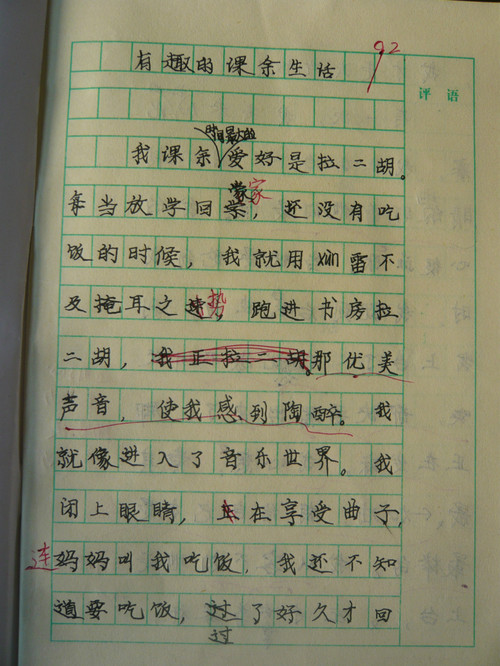 有趣的课余生活
92
评语
时间最大的
我课余爱好是拉二胡。
家
每当放学回家，还没有吃
饭的时候，我就用xùn雷不
及掩耳之速势，跑进书房拉
二胡，我正拉二胡。那优美
声音，使我感到陶醉。我
就像进入了音乐世界。我
闭上眼睛，正在享受曲子，
连妈妈叫我吃饭，我还不知
道要吃饭，过了好久才回
过